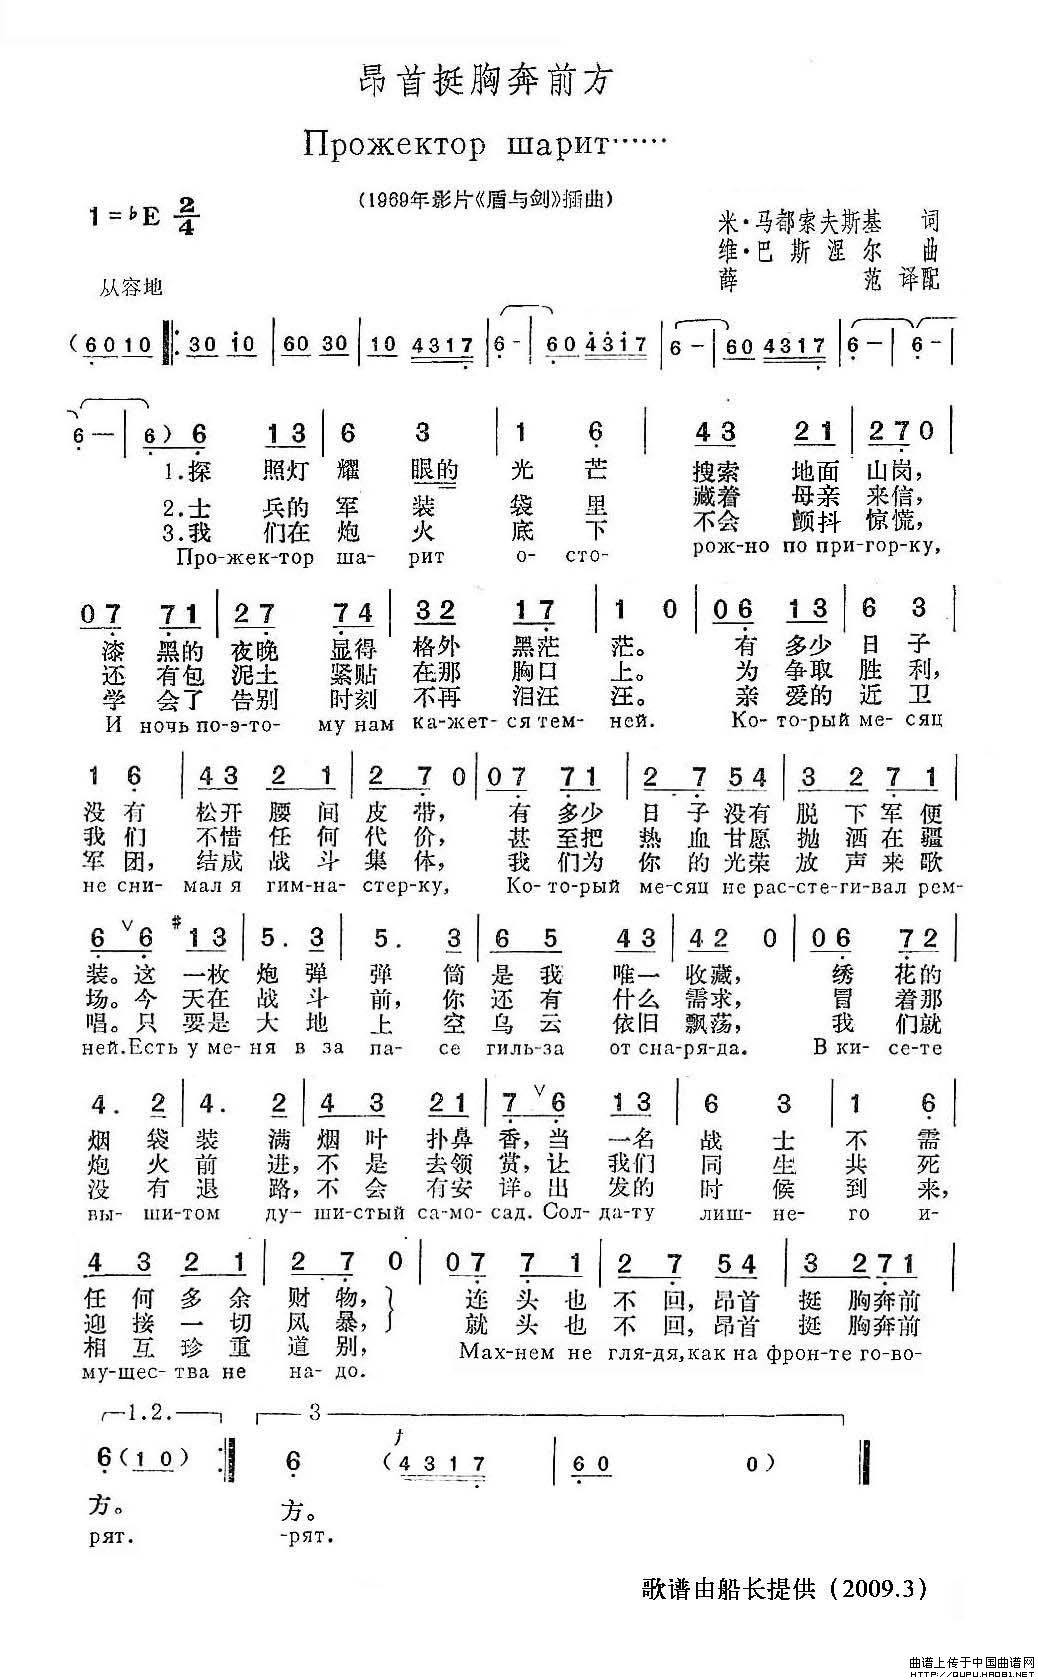 昂首挺胸奔前方
Прожектор шарит……
(1969年影片《盾与剑》插曲)
1=♭E 2/4
米·马都索夫斯基 词
维·巴斯涅尔 曲
薛范 译配
从容地
(6010 ‖: 30 i0 | 60 30 | 10 4317 | 6 - | 60 4317 | 6 - | 60 4317 | 6 - | 6 - |
6 — | 6) 6 13 | 6 3 | 1 6 | 43 21 | 270 |
1.探 照灯 耀 眼的 光 芒 搜索 地面 山岗,
2.士 兵的 军 装 袋 里 藏着 母亲 来信,
3.我 们在 炮 火 底 下 不会 颤抖 惊慌,
Про-жек-тор ша- рит о- сто- рож-но по при-гор-ку,
07 71 | 27 74 | 32 17 | 1 0 | 06 13 | 6 3 |
漆 黑的 夜晚 显得 格外 黑茫 茫。 有 多少 日 子
还 有包 泥土 紧贴 在那 胸口 上。 为 争取 胜 利,
学 会了 告别 时刻 不再 泪汪 汪。 亲 爱的 近 卫
И ночь по-э-то- му нам ка-жет-ся тем- ней. Ко- то-рый ме- сяц
1 6 | 43 2 1 | 2 7 0 | 07 71 | 2 7 54 | 3 2 7 1 |
没 有 松开 腰 间 皮 带, 有 多少 日 子 没有 脱 下 军 便
我 们 不惜 任 何 代 价, 甚 至把 热 血 甘愿 抛 洒 在 疆
军 团, 结成 战 斗 集 体, 我 们为 你 的 光荣 放 声 来 歌
не сни- мал я гим-на- стер-ку, Ко- то-рый ме-сяц не рас-сте-ги-вал рем-
6 ∨ 6 #13 | 5. 3 | 5. 3 | 6 5 43 | 42 0 | 06 72 |
装。这 一枚 炮 弹 弹 筒 是 我 唯一 收藏, 绣 花的
场。今 天在 战 斗 前, 你 还 有 什么 需求, 冒 着那
唱。只 要是 大 地 上 空 乌 云 依旧 飘荡, 我 们就
ней.Есть у ме- ня в за па- се гиль-за от сна-ря-да. В ки- се-те
4. 2 | 4. 2 | 4 3 21 | 7 ∨ 6 13 | 6 3 | 1 6 |
烟 袋 装 满 烟 叶 扑鼻 香,当 一名 战 士 不 需
炮 火 前 进,不 是 去领 赏,让 我们 同 生 共 死
没 有 退 路,不 会 有安 详。出 发的 时 候 到 来,
вы- ши-том ду- ши-стый са-мо- сад. Сол- да-ту лиш- не- го и-
4 3 2 1 | 2 7 0 | 07 7 1 | 2 7 54 | 3 271 |
任 何 多 余 财 物, 连 头 也 不 回,昂首 挺 胸奔前
迎 接 一 切 风 暴, 就 头 也 不 回,昂首 挺 胸奔前
相 互 珍 重 道 别,
му-щес- тва не на- до. Мах-нем не гля-дя,как на фрон-те го-во-
1.2. 3
6 (10) :‖ 6 (4317 | 60 0) ‖
方。 方。
рят. -рят.
歌谱由船长提供 (2009.3)
曲谱上传于中国曲谱网
http://QUPU.HAO81.NET